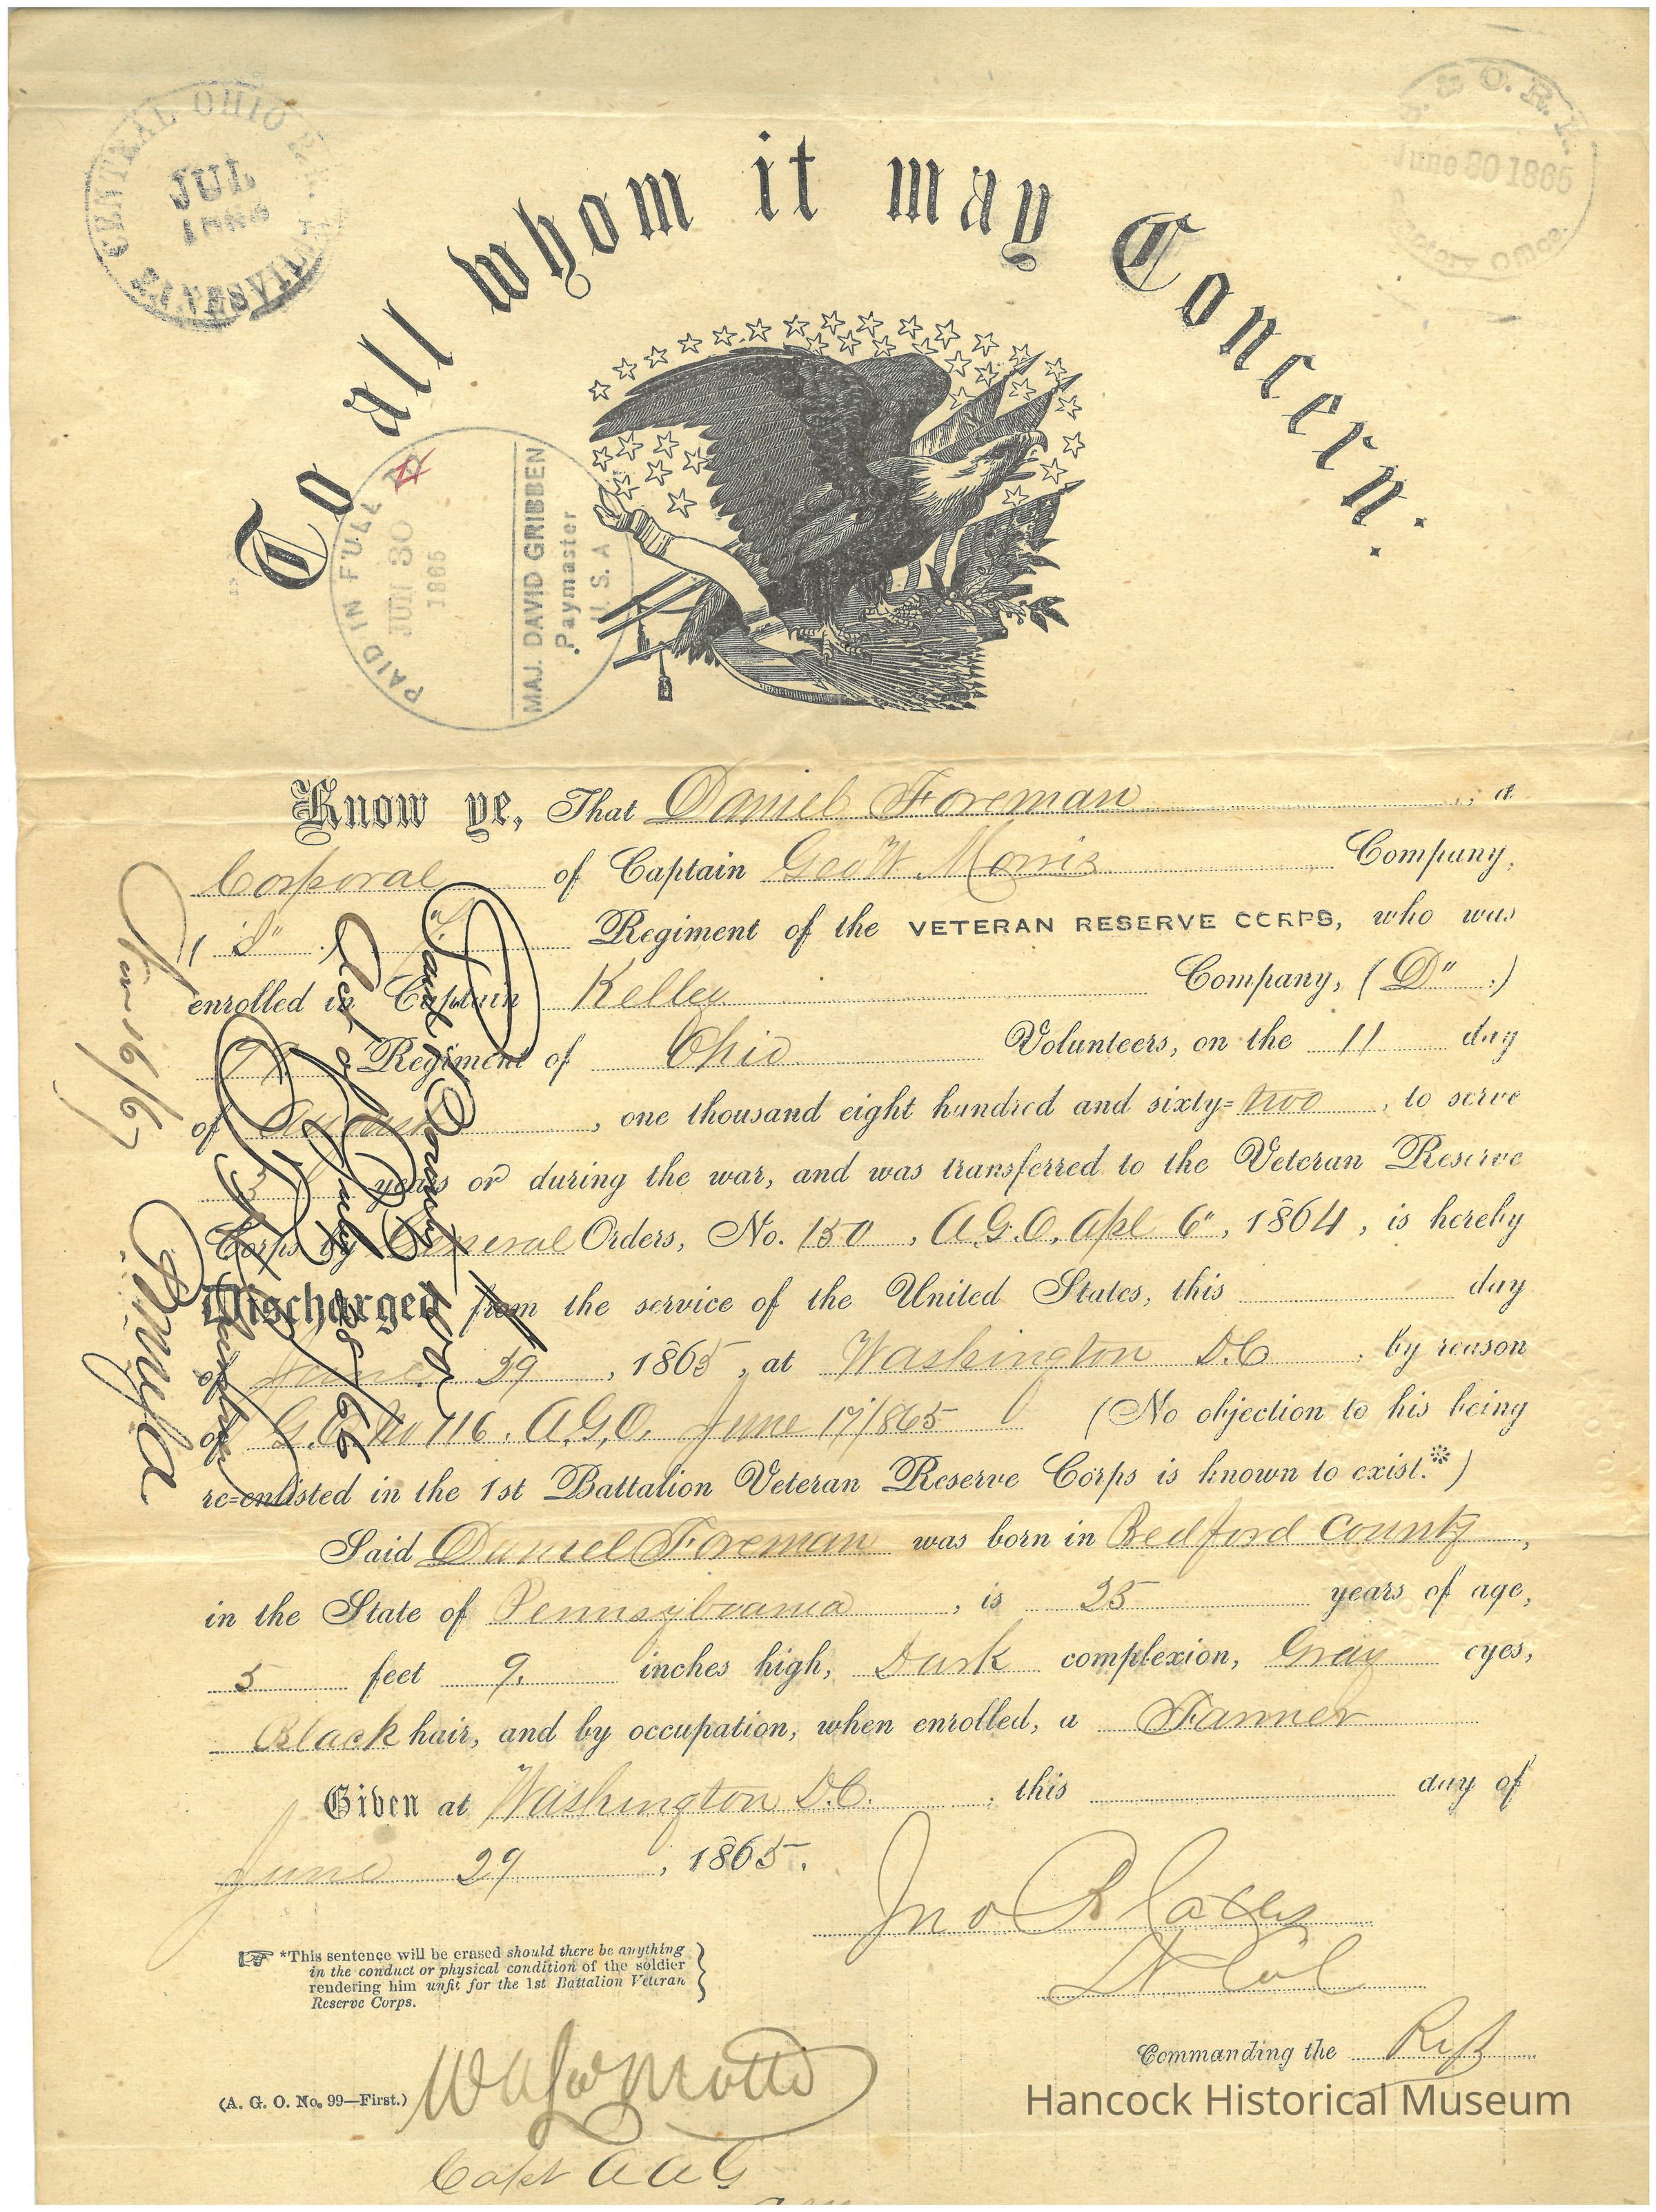 CENTRAL OHIO
JUL
ZANESVILLE
B. & O. R. R.
June 30 1865
Office.
To all whom it may Concern:
PAID IN FULL
JUN 30
1865
MAJ. DAVID GRIBBEN
Paymaster
U. S. A
Know ye, That Daniel Foreman, a
Corporal of Captain Geo W. Morris Company,
Regiment of the VETERAN RESERVE CORPS, who was
enrolled in Captain Kelley Company, ( D" :)
Regiment of Ohio Volunteers, on the 11 day
of August, one thousand eight hundred and sixty=two, to serve
3 years or during the war, and was transferred to the Veteran Reserve
Corps by General Orders, No. 150, A.G.O. Apl 6", 1864, is hereby
Discharged from the service of the United States, this day
of June 29, 1865, at Washington D.C. by reason
of G.O. No 116. A.G.O. June 17/1865 (No objection to his being
re=enlisted in the 1st Battalion Veteran Reserve Corps is known to exist.*)
Said Daniel Foreman was born in Bedford County,
in the State of Pennsylvania, is 25 years of age,
5 feet 9. inches high, Dark complexion, Gray eyes,
Black hair, and by occupation, when enrolled, a Farmer
Given at Washington D.C. this day of
June 29, 1865.
Jno R
Lt Col
*This sentence will be erased should there be anything
in the conduct or physical condition of the soldier
rendering him unfit for the 1st Battalion Veteran
Reserve Corps.
Commanding the
(A. G. O. No. 99—First.)
Capt A A G
Hancock Historical Museum
Jan 16/67